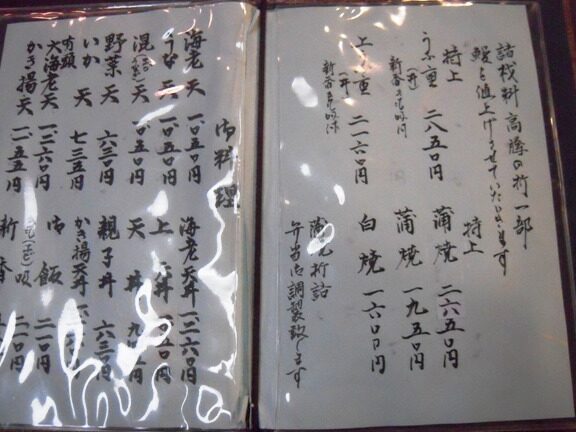 諸材料高騰の折一部
鰻を値上げさせていただきます
特上
うな重 二八五〇円
(丼)
新香 きも吸付
上うな重 二一六〇円
(丼)
新香 きも吸付
特上
蒲焼 二六五〇円
蒲焼 一九五〇円
白焼 一六〇〇円
蒲焼折詰
弁当も調製致します
御料理
海老天 一〇五〇円
うな天 一〇五〇円
混天 一〇五〇円
野菜天 六三〇円
いか天 七三五円
有頭
大海老天 一二六〇円
かき揚天 一一五五円
海老天丼 一二六〇円
上天丼
天丼
親子丼 六三〇円
かき揚天丼
御飯 二一〇円
吸
新香